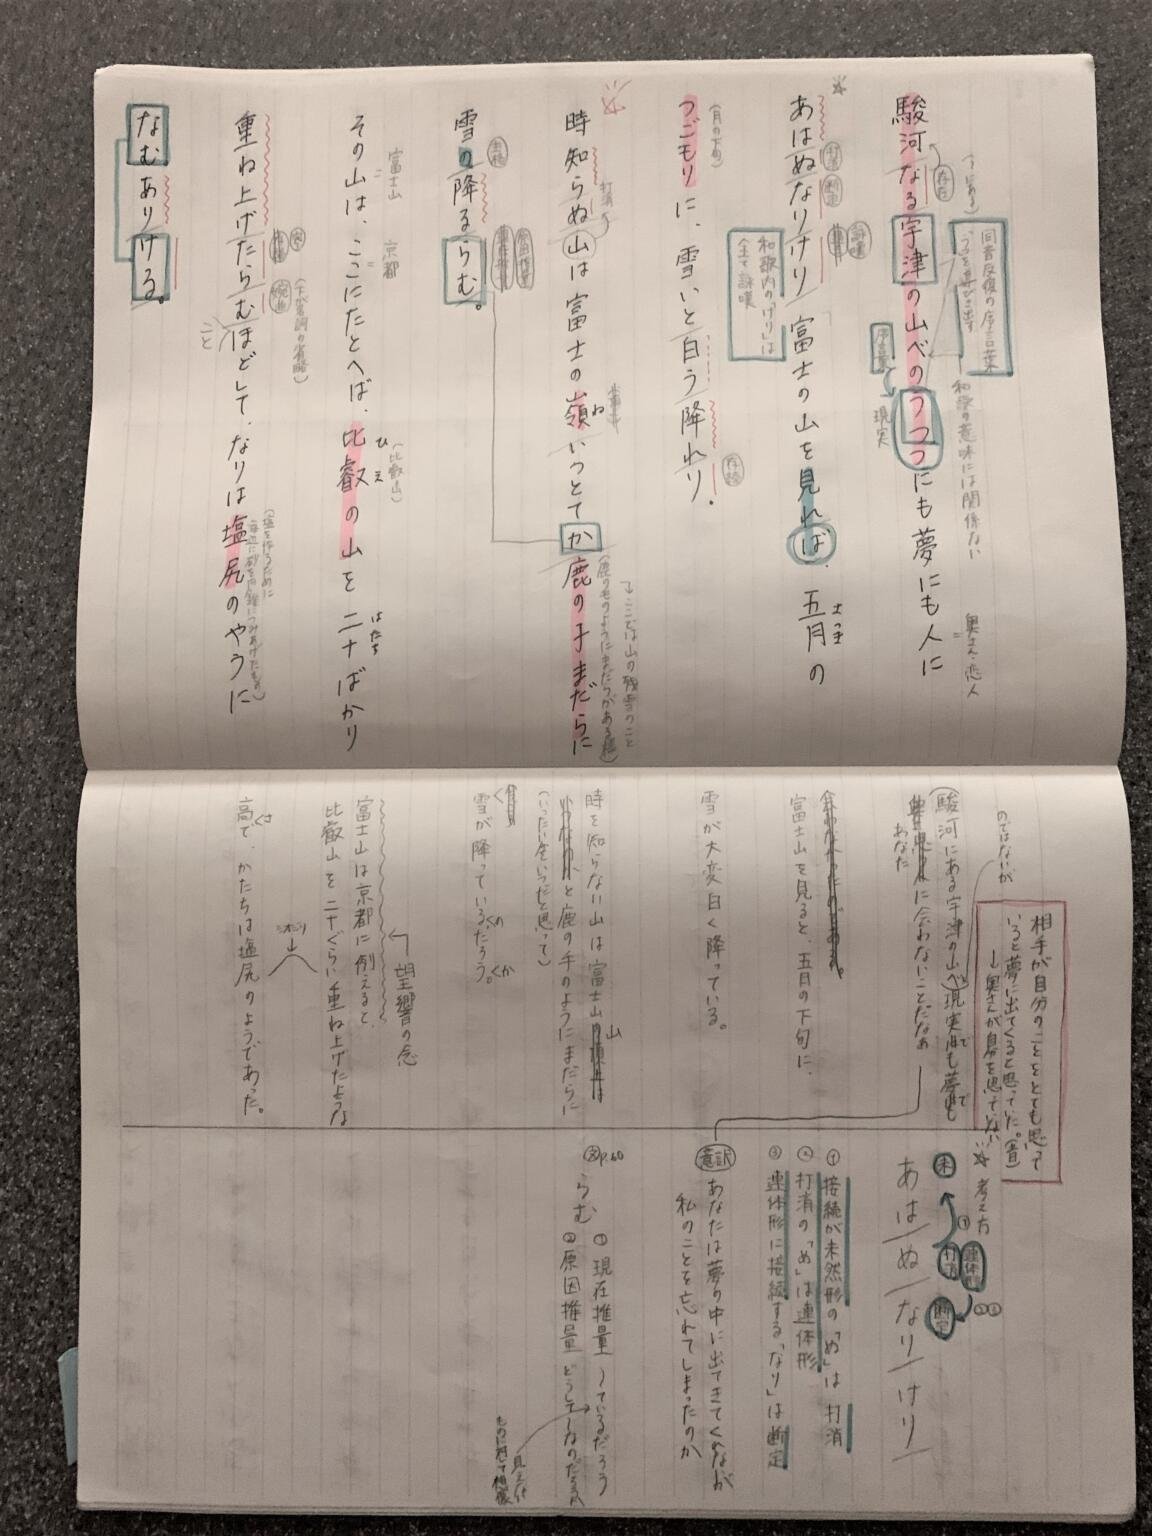 駿河なる宇津の山べのうつつにも夢にも人に
(〜にある)
存在
同音反復の序言葉
「うつ」を呼び出す
和歌の意味には関係ない
序言葉
現実
奥さん・恋人
あはぬなりけり 富士の山を見れば、五月の
打消
断定
詠嘆
和歌内の「けり」は
全て詠嘆
さつき
つごもりに、雪いと白う降れり。
(月の下旬)
存続
時知らぬ山は富士の嶺いつとてか鹿の子まだらに
打消
ね
(鹿の子のようにまだらがある様)
→ここでは山の残雪のこと
雪の降るらむ。
主格
その山は、ここにたとへば、比叡の山を二十ばかり
富士山
京都
ひえ
(比叡山)
はたち
重ね上げたらむほどして、なりは塩尻のやうに
完
婉曲
こと
(塩を作るために
海辺に砂を円錐につみあげたもの)
なむありける。
のではないが
相手が自分のことをとても思って
いると夢に出てくると思っていた。(昔)
→奥さんが自分を思ってない
(駿河にある宇津の山べ)現実でも夢でも
あなた
に会わないことだなあ
富士山を見ると、五月の下旬に、
雪が大変白く降っている。
時を知らない山は富士山
山
と鹿の子のようにまだらに
(いったい今をいつだと思って)
雪が降っているのだろうか。
望郷の念
富士山は京都に例えると、
比叡山を二十ぐらい重ね上げたような
高さで、かたちは塩尻のようであった。
シオジリ
☆考え方
未
①
打消
連体形
②③
断定
あは/ぬ/なり/けり
① 接続が未然形の「ぬ」は打消
② 打消の「ぬ」は連体形
③ 連体形に接続する「なり」は断定
意訳
あなたは夢の中に出てきてくれないが
私のことを忘れてしまったのか
p.60
らむ
① 現在推量 〜ているだろう
② 原因推量 どうして〜なのだろう